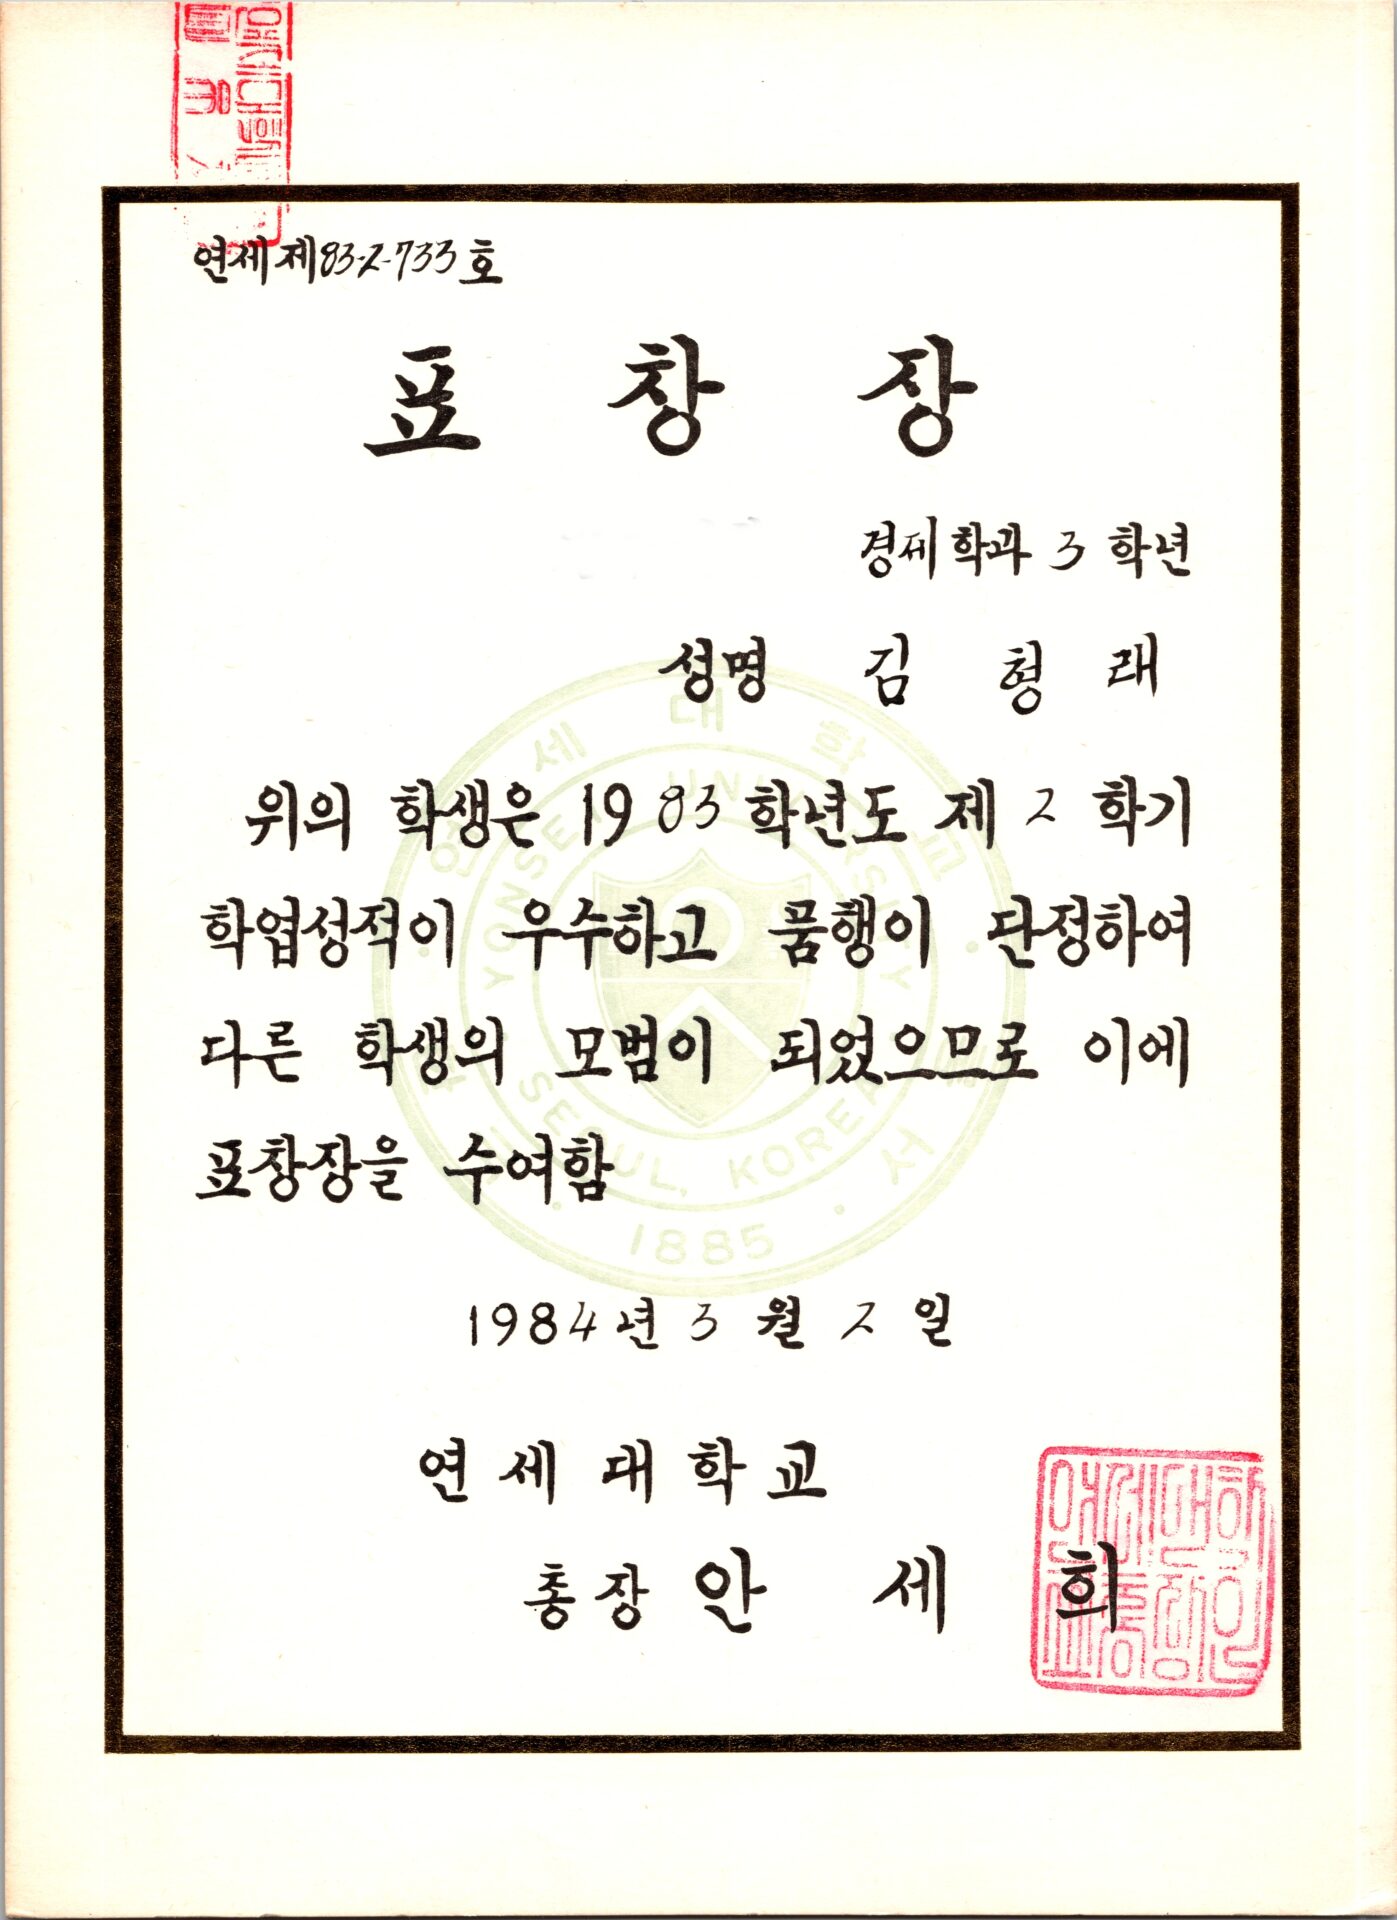 연세 제83-2-733호
표 창 장
경제학과 3 학년
성명 김 형 래
위의 학생은 1983학년도 제 2 학기
학업성적이 우수하고 품행이 단정하여
다른 학생의 모범이 되었으므로 이에
표창장을 수여함
1984년 3 월 2 일
연세대학교
총장 안 세 희
연세대학교
YONSEI UNIVERSITY
SEOUL, KOREA
1885
연세대학교총장인